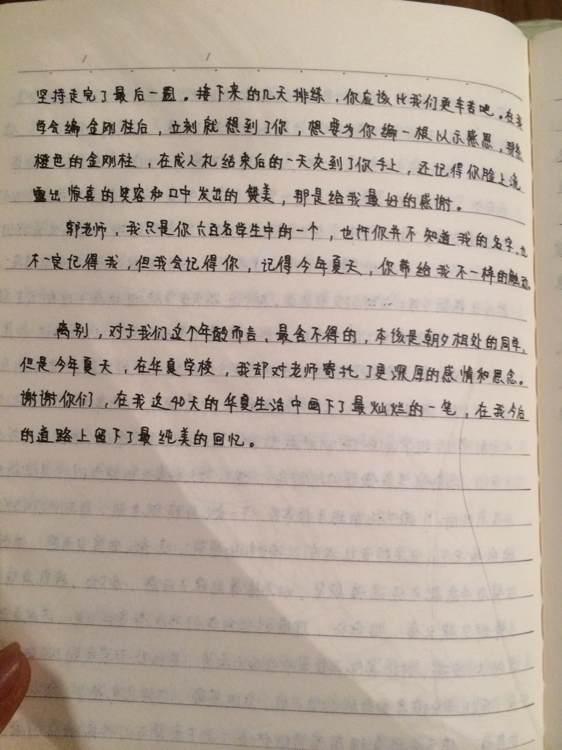 坚持走完了最后一圈。接下来的几天排练，你应该比我们更辛苦吧。在我
学会编金刚柱后，立刻就想到了你，想要为你编一根以示感恩，
橙色的金刚柱，在成人礼结束后的一天交到了你手上，还记得你脸上流
露出惊喜的笑容和口中发出的赞美，那是给我最好的感谢。
郭老师，我只是你六百名学生中的一个，也许你并不知道我的名字，也
不一定记得我，但我会记得你，记得今年夏天，你带给我不一样的触动。
离别，对于我们这个年龄而言，最舍不得的，本该是朝夕相处的同学，
但是今年夏天，在华夏学校，我却对老师寄托了更深厚的感情和思念。
谢谢你们，在我这40天的华夏生活中画下了最灿烂的一笔，在我今后
的道路上留下了最纯美的回忆。